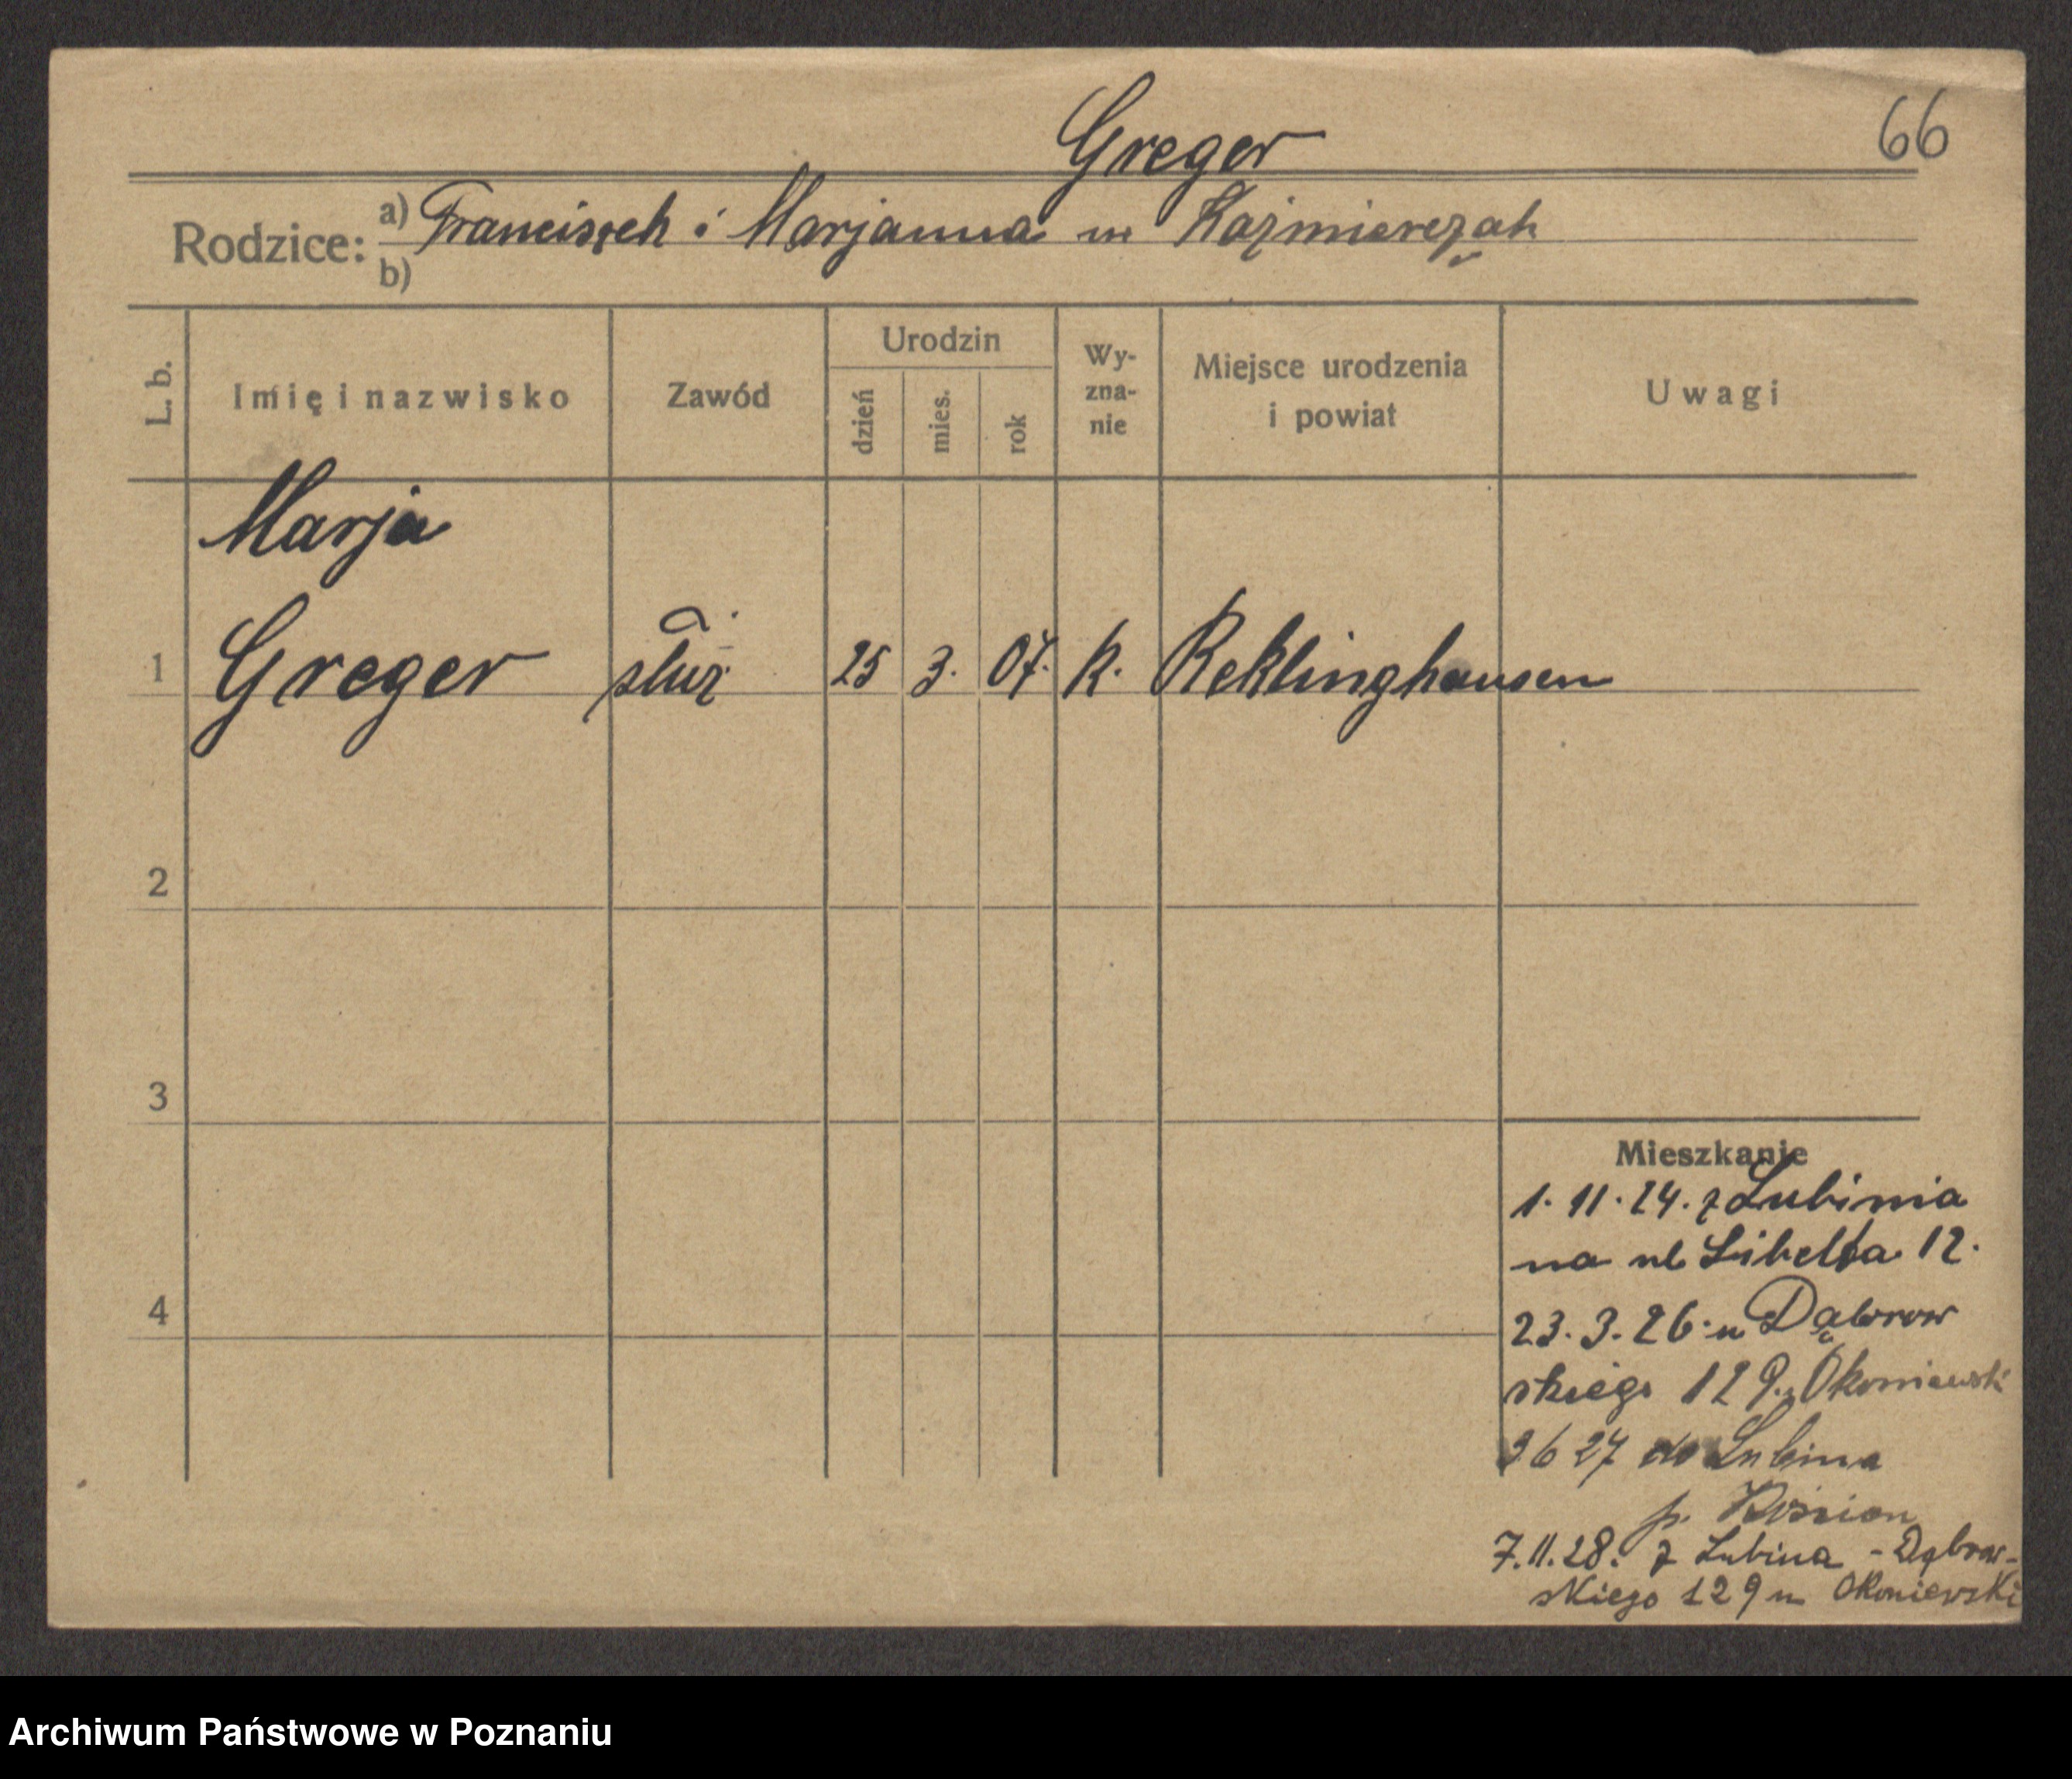 Greger
66
Rodzice: a) Franciszek i Marjanna ur Kaźmierczak
b)
L. b.
Imię i nazwisko
Zawód
Urodzin
dzień
mies.
rok
Wy-
zna-
nie
Miejsce urodzenia
i powiat
Uwagi
Marja
1 Greger służ. 25 3. 07. k. Reklinghausen
2
3
4
Mieszkanie
1. 11. 24. z Lubinia
na ul Libelta 12.
23. 3. 26. u Dąbrow
skiego 129. Okoniewski
9 6 27 do Lubina
p. Kościan
7.11.28. z Lubina - Dąbrow-
skiego 129 u Okoniewski
Archiwum Państwowe w Poznaniu